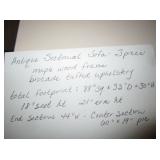 Antique Sectional Sofa - 3 piece
maple wood frame
brocade tufted upholstery
total footprint: 88" sq + 32" D + 30" H
18" seat ht 21" arm ht
End sections 44" W - Center section
60" + 19" pie